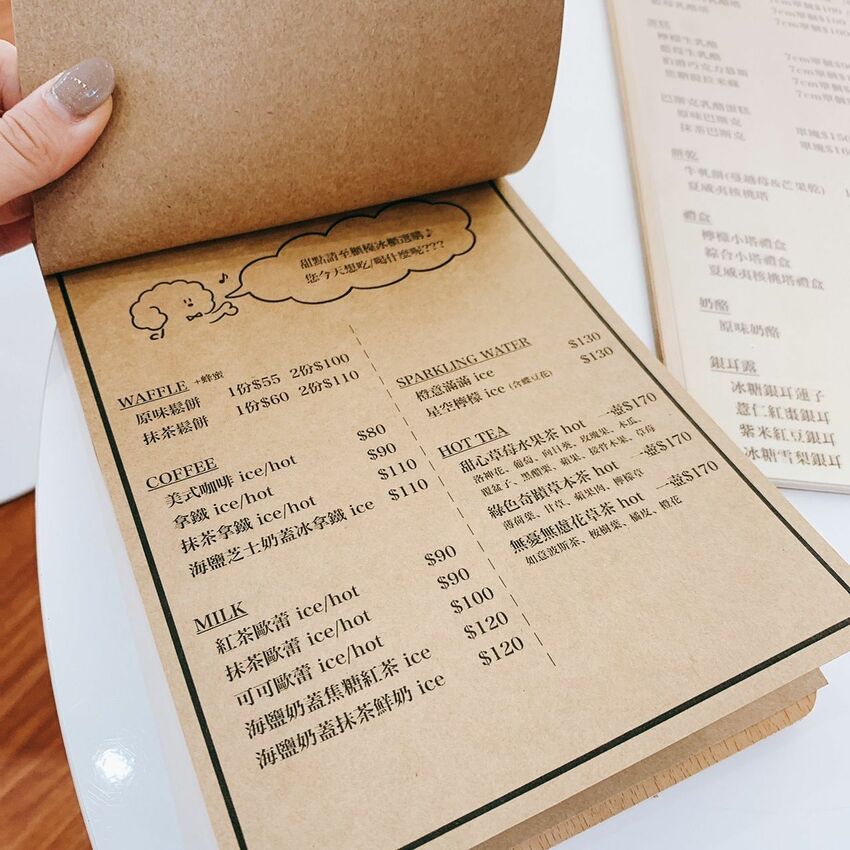 甜點請至櫃檯冰櫃選購♪
您今天想吃/喝什麼呢???
WAFFLE +蜂蜜
原味鬆餅 1份$55 2份$100
抹茶鬆餅 1份$60 2份$110
COFFEE
美式咖啡 ice/hot $80
拿鐵 ice/hot $90
抹茶拿鐵 ice/hot $110
海鹽芝士奶蓋冰拿鐵 ice $110
MILK
紅茶歐蕾 ice/hot $90
抹茶歐蕾 ice/hot $90
可可歐蕾 ice/hot $100
海鹽奶蓋焦糖紅茶 ice $120
海鹽奶蓋抹茶鮮奶 ice $120
SPARKLING WATER
橙意滿滿 ice $130
星空檸檬 ice (含蝶豆花) $130
HOT TEA
甜心草莓水果茶 hot 一壺$170
洛神花、葡萄、向日葵、玫瑰果、木瓜、
覆盆子、黑醋栗、蘋果、接骨木果、草莓
綠色奇蹟草本茶 hot 一壺$170
薄荷葉、甘草、蘋果肉、檸檬草
無憂無慮花草茶 hot 一壺$170
如意波斯茶、桉樹葉、橘皮、橙花
蛋糕
檸檬生乳酪
藍莓生乳酪
伯爵巧克力慕斯
焦糖提拉米蘇
巴斯克乳酪蛋糕
原味巴斯克 單塊$150
抹茶巴斯克 單塊$16
餅乾
牛軋餅(蔓越莓&芒果乾)
夏威夷核桃塔
禮盒
檸檬小塔禮盒
綜合小塔禮盒
夏威夷核桃塔禮盒
奶酪
原味奶酪
銀耳露
冰糖銀耳蓮子
薏仁紅棗銀耳
紫米紅豆銀耳
冰糖雪梨銀耳